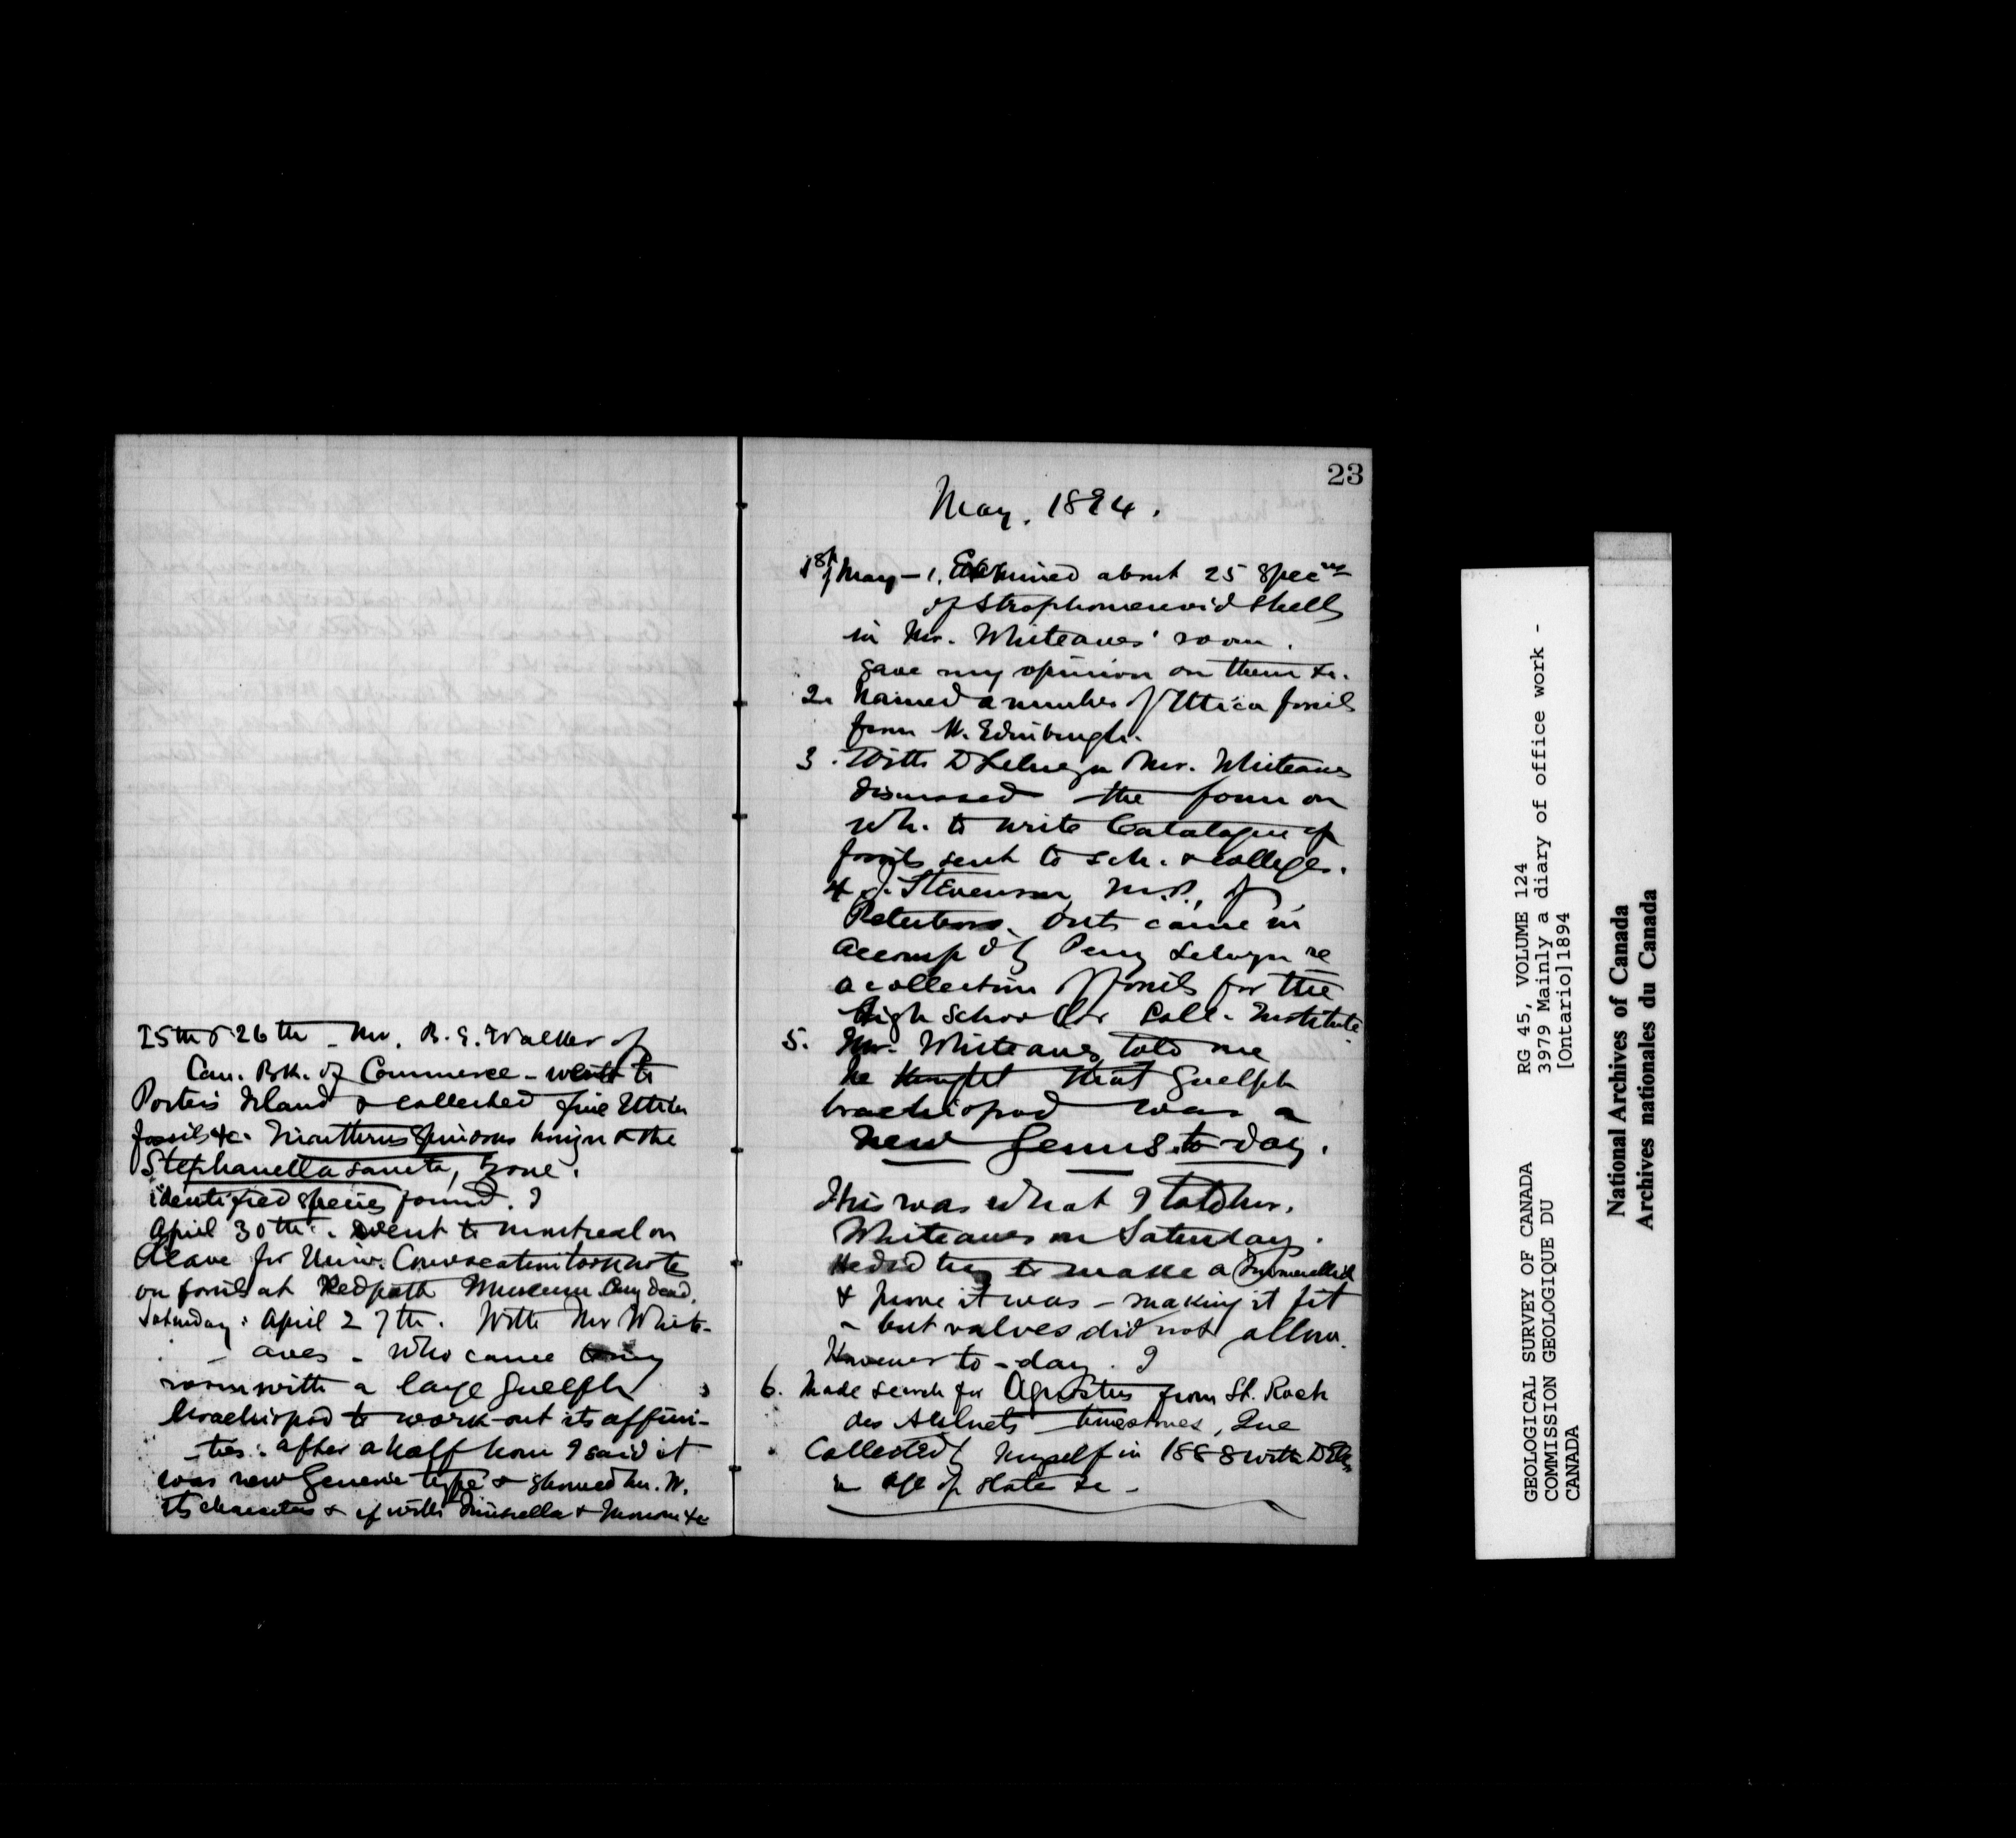 25th & 26th - Mr. B. E. Walker of
Can. Bk. of Commerce - went to
Porter's Island & collected fine Utica
fossils &c. Triarthrus spinosus & the
Stephanella sancta, zone.
identified species found.
April 30th. Went to Montreal on
leave for Univ. Convocation took notes
on fossils at Redpath Museum
Saturday: April 27th. With Mr White-
aves - who came to my
room with a large Guelph
brachiopod to work out its affini-
ties: after a half hour I said it
was new Generic type & showed Mr. W.
its characters & cf with Trimerella & &c
23
May. 1894.
1st May - 1. Examined about 25 Specns
of Strophomenoid shells
in Mr. Whiteaves' room.
gave my opinion on them &c.
2. Named a number of Utica fossils
from N. Edinburgh.
3. With D Selwyn Mr. Whiteaves
discussed the form on
wh. to write Catalogue of
fossils sent to sch. & colleges.
4 J. Stevenson, M.P., of
Peterboro. Ont. came in
accompd by Percy Selwyn re
a collection of fossils for the
High School or Coll. Institute
5. Mr. Whiteaves told me
he thought that Guelph
brachiopod was a
new Genus to-day.
This was what I told Mr.
Whiteaves on Saturday.
He did try to make a Trimerellid
& prove it was - making it fit
- but valves did not allow.
However to-day.
6. Made search for Agnostus from St. Roch
des Aulnets limestones, Que
Collected by myself in 1888 with D Ells
age of slate &c -
GEOLOGICAL SURVEY OF CANADA
COMMISSION GEOLOGIQUE DU
CANADA
RG 45, VOLUME 124
3979 Mainly a diary of office work -
[Ontario]1894
National Archives of Canada
Archives nationales du Canada